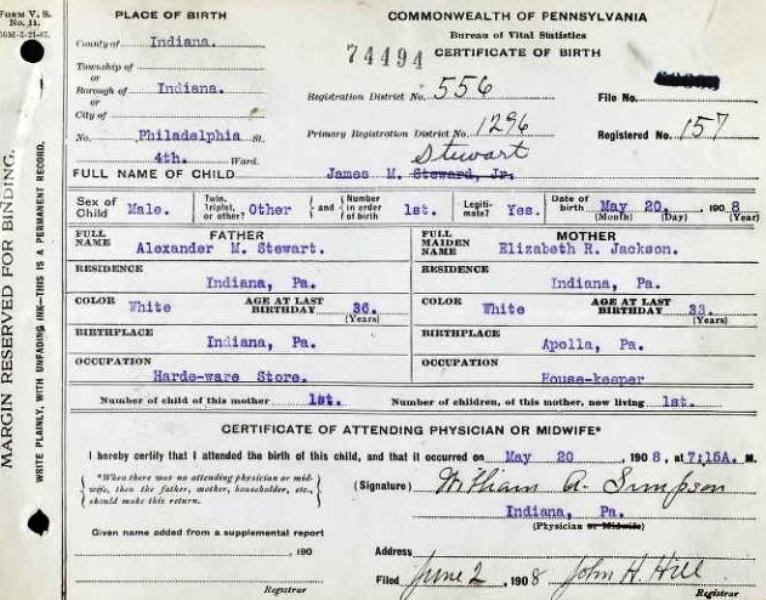 FORM V. S.
No. 11.
PLACE OF BIRTH
COMMONWEALTH OF PENNSYLVANIA
Bureau of Vital Statistics
CERTIFICATE OF BIRTH
74494
County of Indiana.
Township of
or
Borough of Indiana.
or
City of
No. Philadelphia St.
4th. Ward.
Registration District No. 556
File No.
Primary Registration District No. 1296
Registered No. 157
Stewart
FULL NAME OF CHILD James M. Steward, Jr.
Sex of Child Male.
Twin, Triplet, or other? Other
and Number in order of birth 1st.
Legiti- mate? Yes.
Date of birth May 20, 1908
(Month) (Day) (Year)
FATHER
FULL NAME Alexander M. Stewart.
RESIDENCE
Indiana, Pa.
COLOR White AGE AT LAST BIRTHDAY 36.
(Years)
BIRTHPLACE
Indiana, Pa.
OCCUPATION
Harde-ware Store.
MOTHER
FULL MAIDEN NAME Elizabeth R. Jackson.
RESIDENCE
Indiana, Pa.
COLOR White AGE AT LAST BIRTHDAY 33.
(Years)
BIRTHPLACE
Apolla, Pa.
OCCUPATION
House-keeper
Number of child of this mother 1st. Number of children, of this mother, now living 1st.
CERTIFICATE OF ATTENDING PHYSICIAN OR MIDWIFE*
I hereby certify that I attended the birth of this child, and that it occurred on May 20 1908, at 7:15A. M.
*When there was no attending physician or mid-
wife, then the father, mother, householder, etc.
should make this return.
(Signature) William A. Simpson
Indiana, Pa.
(Physician or Midwife)
Given name added from a supplemental report
, 190
Registrar
Address
Filed June 2, 1908 John H. Hill
Registrar
MARGIN RESERVED FOR BINDING.
WRITE PLAINLY, WITH UNFADING INK—THIS IS A PERMANENT RECORD.